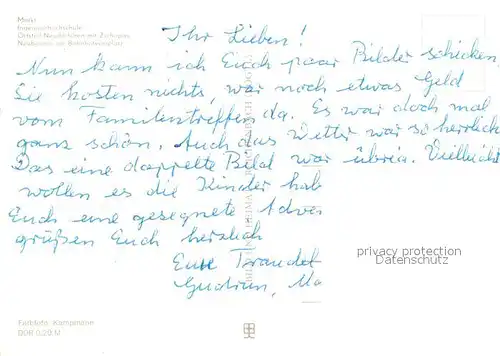 Markt
Ingenieurhochschule
Ortsteil
Neubauten am Bahnhofsvorplatz
Ihr Lieben!
Nun kann ich Euch paar Bilder schicken,
Sie kosten nichts, war noch etwas Geld
vom Familientreffen da. Es war doch mal
ganz schön. Auch das Wetter war so herrlich
Das eine doppelte Bild war übrig. Vielleicht
wollen es die Kinder hab
Euch eine gesegnete Adve
grüßen Euch herzlich
Eure Traudel
Gudrun, Ma
privacy protection
Datenschutz
Farbfoto: Kampmann
DDR 0,20 M